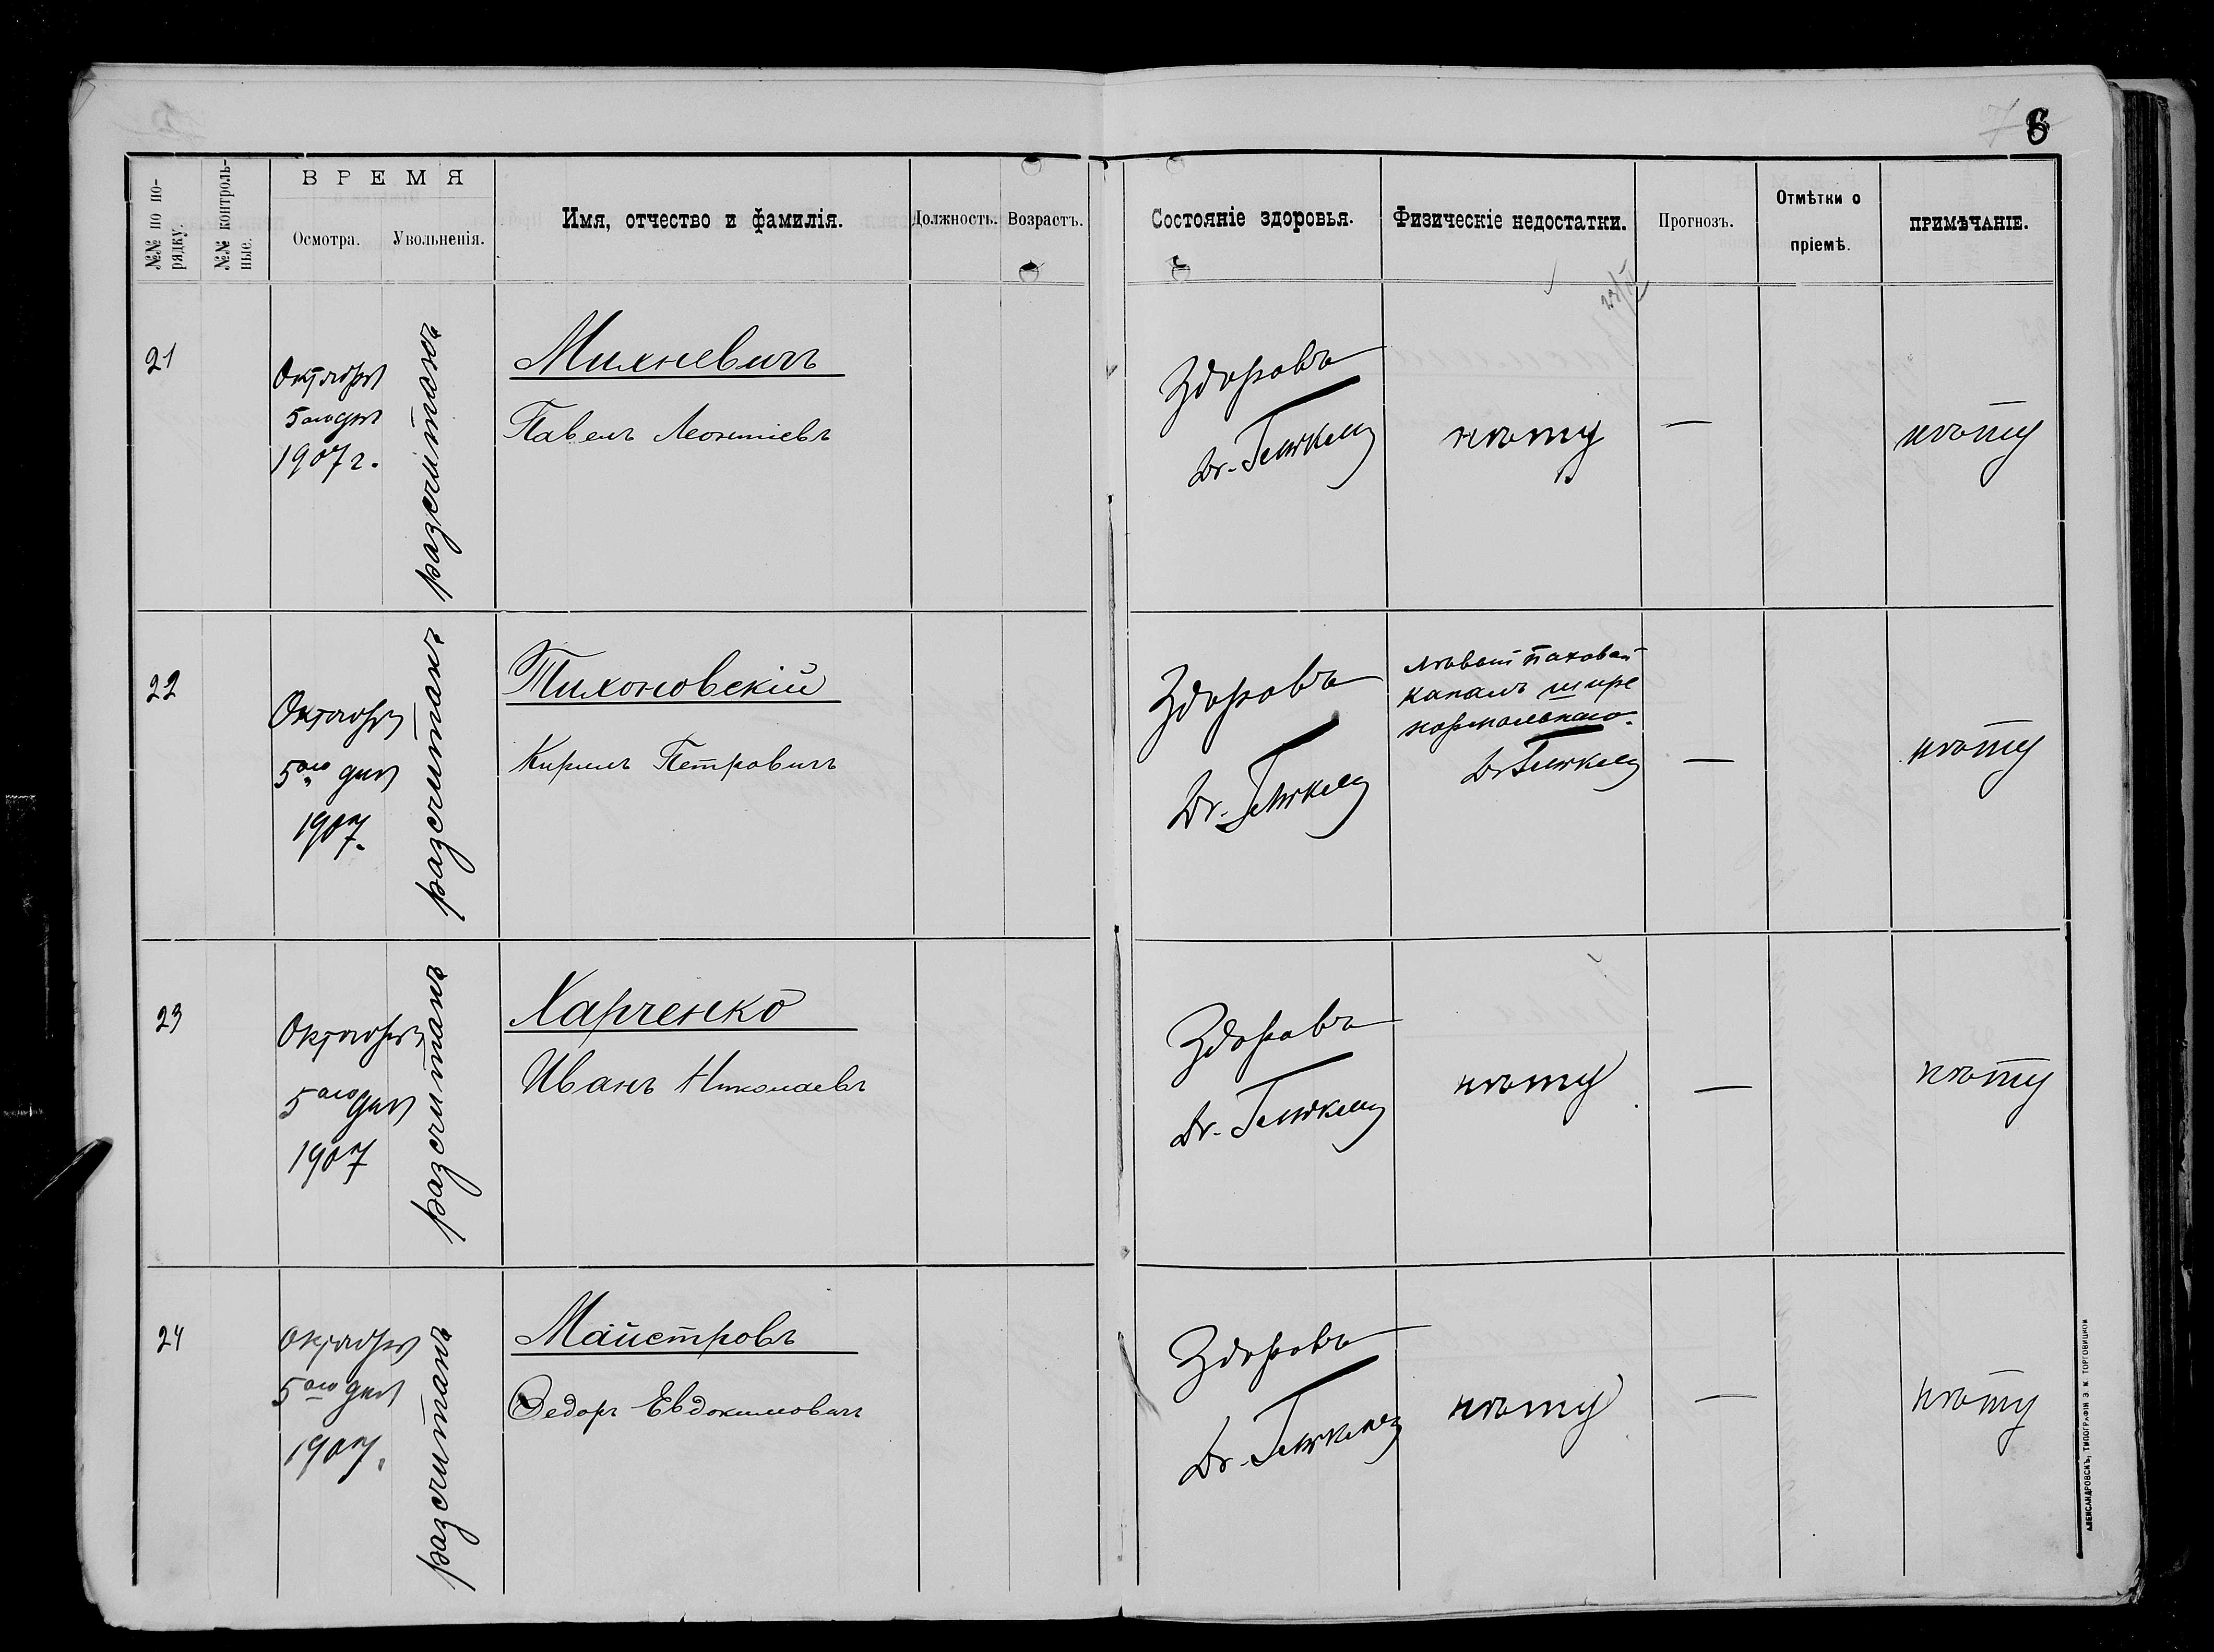 6
ВРЕМЯ
№№ по по-
рядку.
№№ контроль-
ные.
Осмотра.
Увольненія.
Имя, отчество и фамилія.
Должность.
Возрастъ.
Состояніе здоровья.
Физическіе недостатки.
Прогнозъ.
Отмѣтки о
пріемѣ.
ПРИМѢЧАНІЕ.
21
Октября
5ого дня
1907 г.
разсчитанъ
Михневичъ
Павелъ Леонтіевъ
Здоровъ
Dr.
нѣту
—
нѣту
22
Октября
5ого дня
1907.
разсчитанъ
Тихоновскій
Кирилъ Петровичъ
Здоровъ
Dr.
Лѣвый паховой
каналъ шире
нормальнаго.
Dr
—
нѣту
23
Октября
5ого дня
1907
разсчитанъ
Харченко
Иванъ Николаевъ
Здоровъ
Dr.
нѣту
—
нѣту
24
Октября
5ого дня
1907.
разсчитанъ
Майстровъ
Федоръ Евдокимовичъ
Здоровъ
Dr.
нѣту
—
нѣту
АЛЕКСАНДРОВСКЪ, ТИПОГРАФІЯ Э. И. ТОРГОВИЦКОЙ